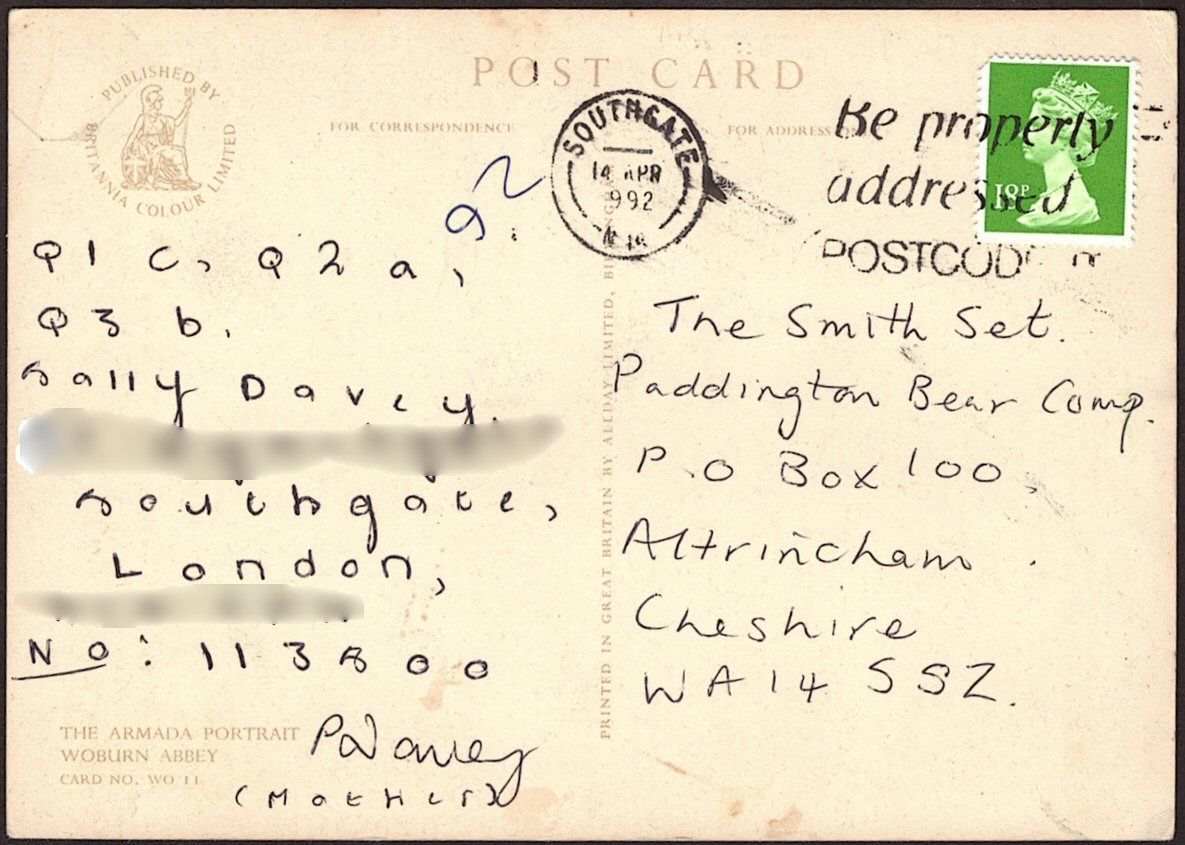 POST CARD
PUBLISHED BY
BRITANNIA COLOUR LIMITED
FOR CORRESPONDENCE
FOR ADDRESS
SOUTHGATE
14 APR
1992
Be properly
addressed
POSTCODE IT
18P
92
Q1 c, Q2 a,
Q3 b.
Sally Davey.
Southgate,
London,
No: 113800
PDavey
(Mother)
THE ARMADA PORTRAIT
WOBURN ABBEY
CARD NO. WO 11
PRINTED IN GREAT BRITAIN BY ALLDAY LIMITED,
The Smith Set.
Paddington Bear Comp.
P.O Box 100,
Altrincham.
Cheshire
WA14 5SZ.